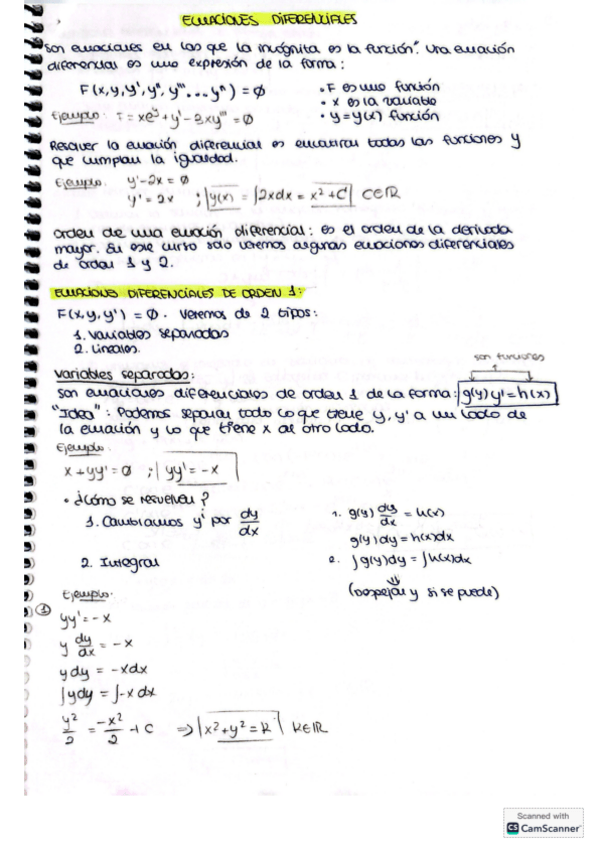 ECUACIONES DIFERENCIALES
Son ecuaciones en las que la incógnita es la función". Una ecuación
diferencial es una expresión de la forma:
F(x,y,y',y'',y''',...yⁿ) = 0
• F es una función
• x es la variable
• y=y(x) función
Ejemplo: F = xe^y + y' - 3xy''' = 0
Resolver la ecuación diferencial es encontrar todas las funciones y
que cumplan la igualdad.
Ejemplo. y'-2x = 0
y' = 2x ; y(x) = ∫2xdx = x² + C C∈ℝ
Orden de una ecuación diferencial: es el orden de la derivada
mayor. En este curso solo veremos algunas ecuaciones diferenciales
de orden 1 y 2.
ECUACIONES DIFERENCIALES DE ORDEN 1:
F(x,y,y') = 0. Veremos de 2 tipos:
1. Variables separadas
2. Lineales.
son funciones
Variables separadas:
Son ecuaciones diferenciales de orden 1 de la forma: g(y) y' = h(x)
"Idea": Podemos separar todo lo que tiene y, y' a un lado de
la ecuación y lo que tiene x al otro lado.
Ejemplo:
x + yy' = 0 ; yy' = -x
• ¿Cómo se resuelven?
1. Cambiamos y' por dy/dx
1. g(y) dy/dx = h(x)
g(y)dy = h(x)dx
2. Integrar
2. ∫g(y)dy = ∫h(x)dx
⇓
(Despejar y si se puede)
Ejemplo.
① yy' = -x
y dy/dx = -x
ydy = -xdx
∫ydy = ∫-x dx
y²/2 = -x²/2 + C ⇒ x²+y² = k k∈ℝ
Scanned with
CS CamScanner